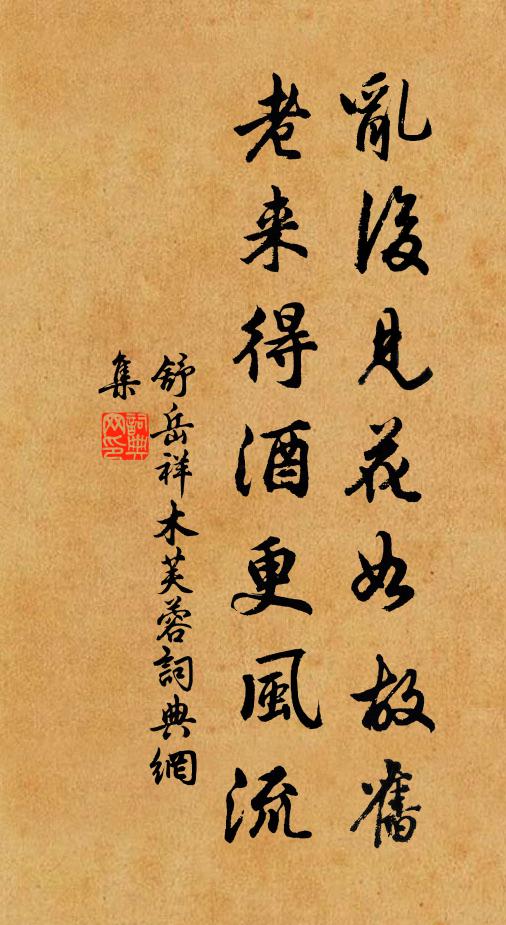 亂後見花如故舊
老来得酒更風流
舒岳祥木芙蓉詞典網
集
詞典
网印